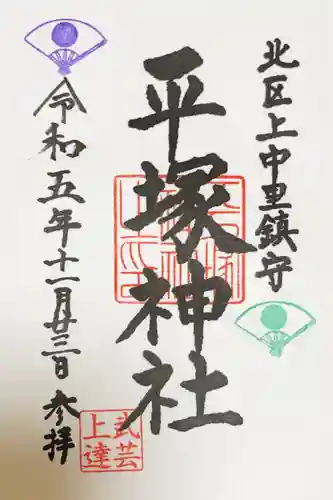 北区上中里鎮守
平塚神社
令和五年十一月廿三日参拝
武芸
上達